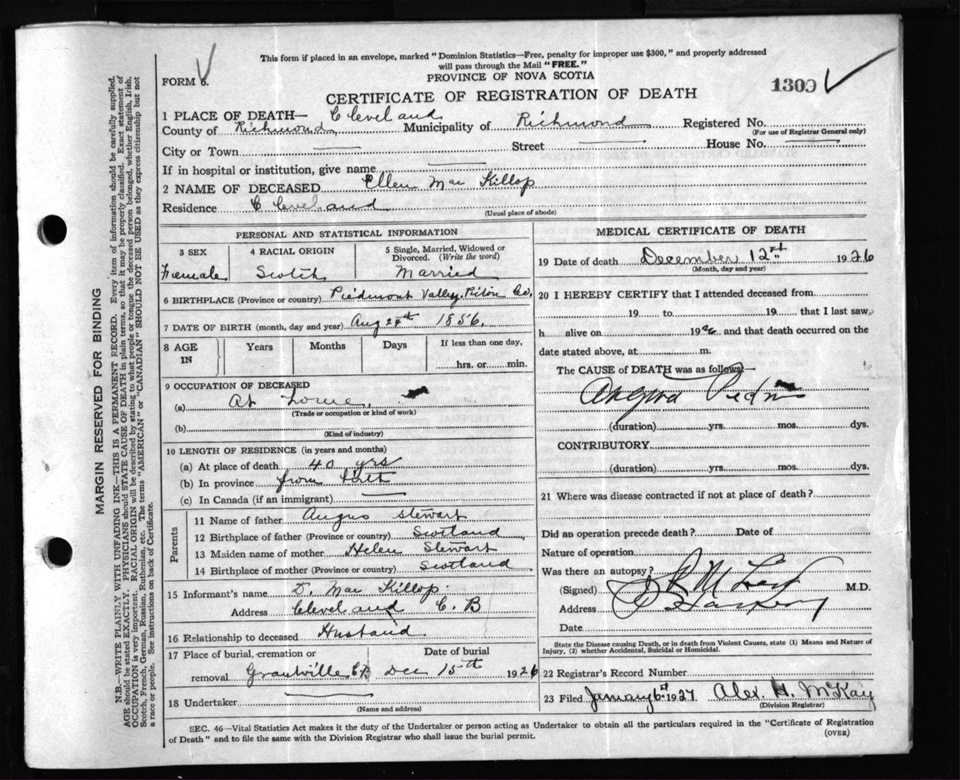 This form if placed in an envelope, marked "Dominion Statistics—Free, penalty for improper use $300," and properly addressed
will pass through the Mail "FREE."
FORM 6.
PROVINCE OF NOVA SCOTIA
1309
CERTIFICATE OF REGISTRATION OF DEATH
1 PLACE OF DEATH— Cleveland
County of Richmond Municipality of Richmond Registered No.
(For use of Registrar General only)
City or Town Street House No.
If in hospital or institution, give name
2 NAME OF DECEASED Ellen Mac Killop
Residence Cleveland
(Usual place of abode)
PERSONAL AND STATISTICAL INFORMATION
3 SEX 4 RACIAL ORIGIN 5 Single, Married, Widowed or
Divorced. (Write the word)
Female Scotch Married
6 BIRTHPLACE (Province or country) Piedmont Valley, Pictou Co.
7 DATE OF BIRTH (month, day and year) Aug 1856.
8 AGE IN Years Months Days If less than one day,
hrs. or min.
9 OCCUPATION OF DECEASED
(a) At home
(Trade or occupation or kind of work)
(b)
(Kind of industry)
10 LENGTH OF RESIDENCE (in years and months)
(a) At place of death 40 yrs
(b) In province from birth
(c) In Canada (if an immigrant)
Parents
11 Name of father Angus Stewart
12 Birthplace of father (Province or country) Scotland
13 Maiden name of mother Helen Stewart
14 Birthplace of mother (Province or country) Scotland
15 Informant's name D. Mac Killop
Address Cleveland C. B
16 Relationship to deceased Husband
17 Place of burial, cremation or Date of burial
removal Grantville CB Dec 15th 1926
18 Undertaker
(Name and address)
MEDICAL CERTIFICATE OF DEATH
19 Date of death December 12 1926
(Month, day and year)
20 I HEREBY CERTIFY that I attended deceased from
19 to 19 that I last saw
h alive on 1926 and that death occurred on
date stated above, at m.
The CAUSE of DEATH was as follows:—
Angina
(duration) yrs. mos. dys.
CONTRIBUTORY
(duration) yrs. mos. dys.
21 Where was disease contracted if not at place of death?
Did an operation precede death? Date of
Nature of operation
Was there an autopsy?
(Signed) M.D.
Address
Date
State the Disease causing Death, or in death from Violent Causes, state (1) Means and Nature of
Injury, (2) whether Accidental, Suicidal or Homicidal.
22 Registrar's Record Number
23 Filed January 6 1927 Alex. H. McKay
(Division Registrar)
SEC. 46—Vital Statistics Act makes it the duty of the Undertaker or person acting as Undertaker to obtain all the particulars required in the "Certificate of Registration
of Death" and to file the same with the Division Registrar who shall issue the burial permit.
(OVER)
MARGIN RESERVED FOR BINDING
N.B.—WRITE PLAINLY WITH UNFADING INK—THIS IS A PERMANENT RECORD. Every item of information should be carefully supplied.
AGE should be stated EXACTLY. PHYSICIANS should STATE CAUSE OF DEATH in plain terms, so that it may be properly classified. Exact statement of
OCCUPATION is very important. RACIAL ORIGIN will be described by stating to what people or tongue the deceased person belonged, whether English, Irish,
Scotch, French, German, Russian, Ruthenian, etc. The terms "AMERICAN" or "CANADIAN" SHOULD NOT BE USED as they express citizenship but not
a race or people. See instructions on back of Certificate.